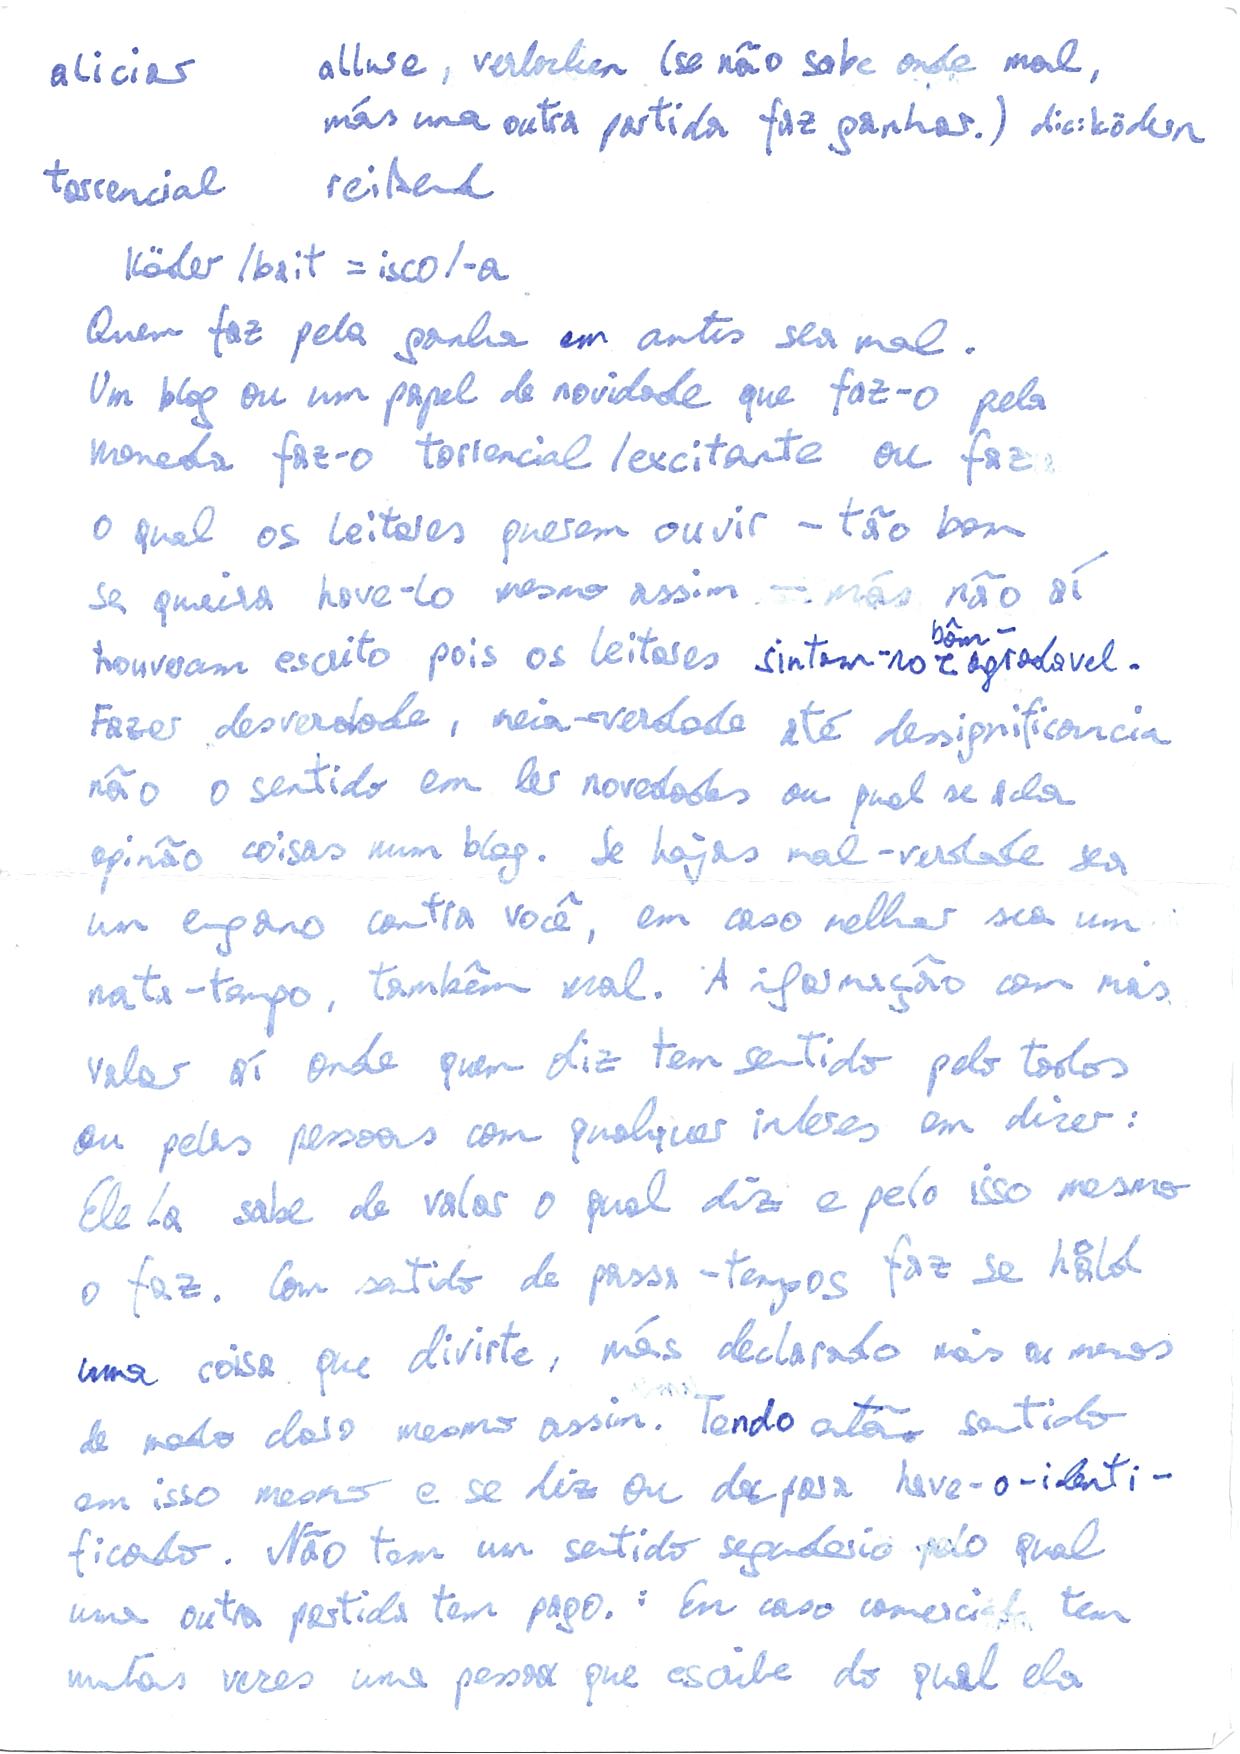 aliciar allure, verlocken (se não sabe onde mal,
más uma outra partida faz ganhar.) dic: ködern
torrencial reißend
Köder / bait = isco / -a
Quem faz pela ganha em antes sea mal.
Um blog ou um papel de novidade que faz-o pela
moneda faz-o torrencial / excitante ou faz
o qual os leitores querem ouvir - tão bom
se queira have-lo mesmo assim - más não aí
houveram escrito pois os leitores sintam-no bôm- e agradavel.
Fazer desverdade, meia-verdade até dessignificancia
não o sentido em ler novedades ou qual se acha
opinão coisas num blog. Se hajas mal-verdade sea
um engano contra você, em caso melhor sea um
mata-tempo, tambêm mal. A iformação com mais
valor aí onde quem diz tem sentido pelo todos
ou pelas pessoas com qualquer interes em dizer:
Ele/a sabe de valor o qual diz e pelo isso mesmo
o faz. Com sentido de passa-tempos faz se
uma coisa que divirte, más declarado mais ou menos
de modo claro mesmo assim. Tendo então sentido
em isso mesmo e se diz ou have-o-identi-
ficado. Não tem um sentido segundario pelo qual
uma outra partida tem pago. : Em caso comercial tem
muitas vezes uma pessoa que escribe do qual ela